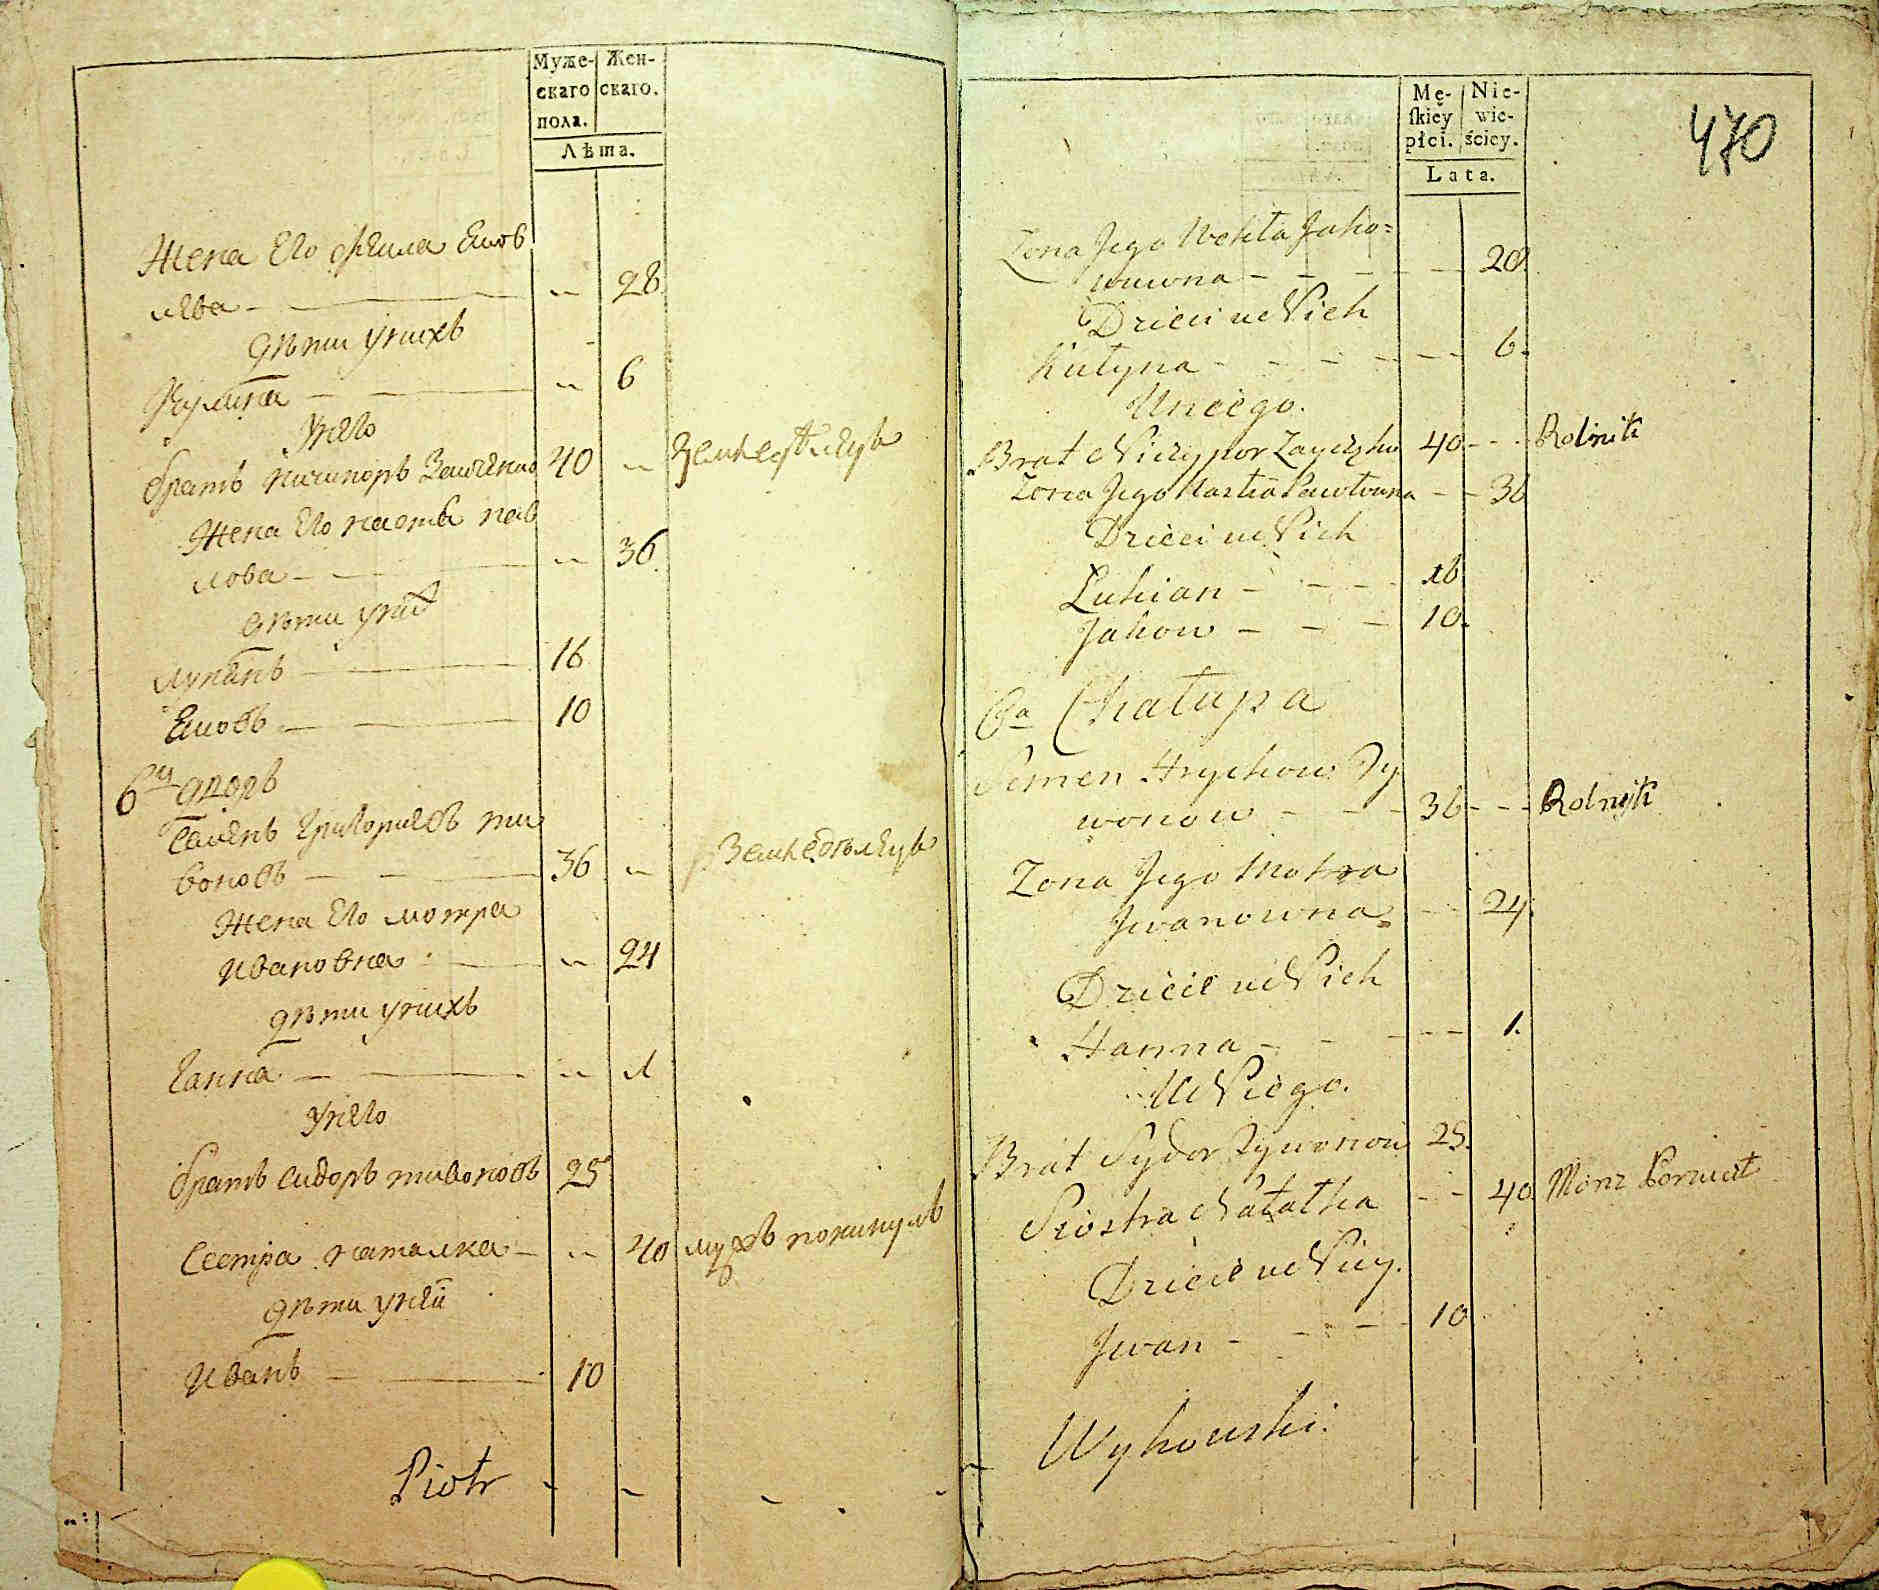 Муже-
скаго
пола.
Жен-
скаго.
Лѣта.
Жена Его Еков
лева 28
дѣти унихъ
6
унего
братъ Ничипоръ 40 Земледѣлецъ
Жена Его Настя пав
лова 36
дѣти унихъ
Лукянъ 16
Ековъ 10
6й дворъ
Семенъ Григориевъ ти
воновъ 36 Земледѣлецъ
Жена Его мотра
Ивановна 24
дѣти унихъ
Ганна 1
унего
братъ Сидоръ тивоновъ 25
Сестра наталка 40 мужъ покинулъ
дѣти унеи
Иванъ 10
Piotr
Mę-
ſkiey
płci.
Nie-
wie-
ściey.
Lata.
470
Zona Jego Wekła Jako=
wowna 28
Dzieci u Nich
6.
Uniego.
Brat Niczypor 40 Rolnik
Zona Jego Nastia Pawłowna 36
Dzieci u Nich
Łukian 16
Jakow 10.
6a Chałupa
Semen Hryhow Ty
wonow 36 Rolnik
Zona Jego Motra
Jwanowna 24.
Dziecie u Nich
Hanna 1.
U Niego.
Brat Sydor Tywonow 25.
Siostra Natałka 40
Dziecie u Niey.
Jwan 10
Wykowski.